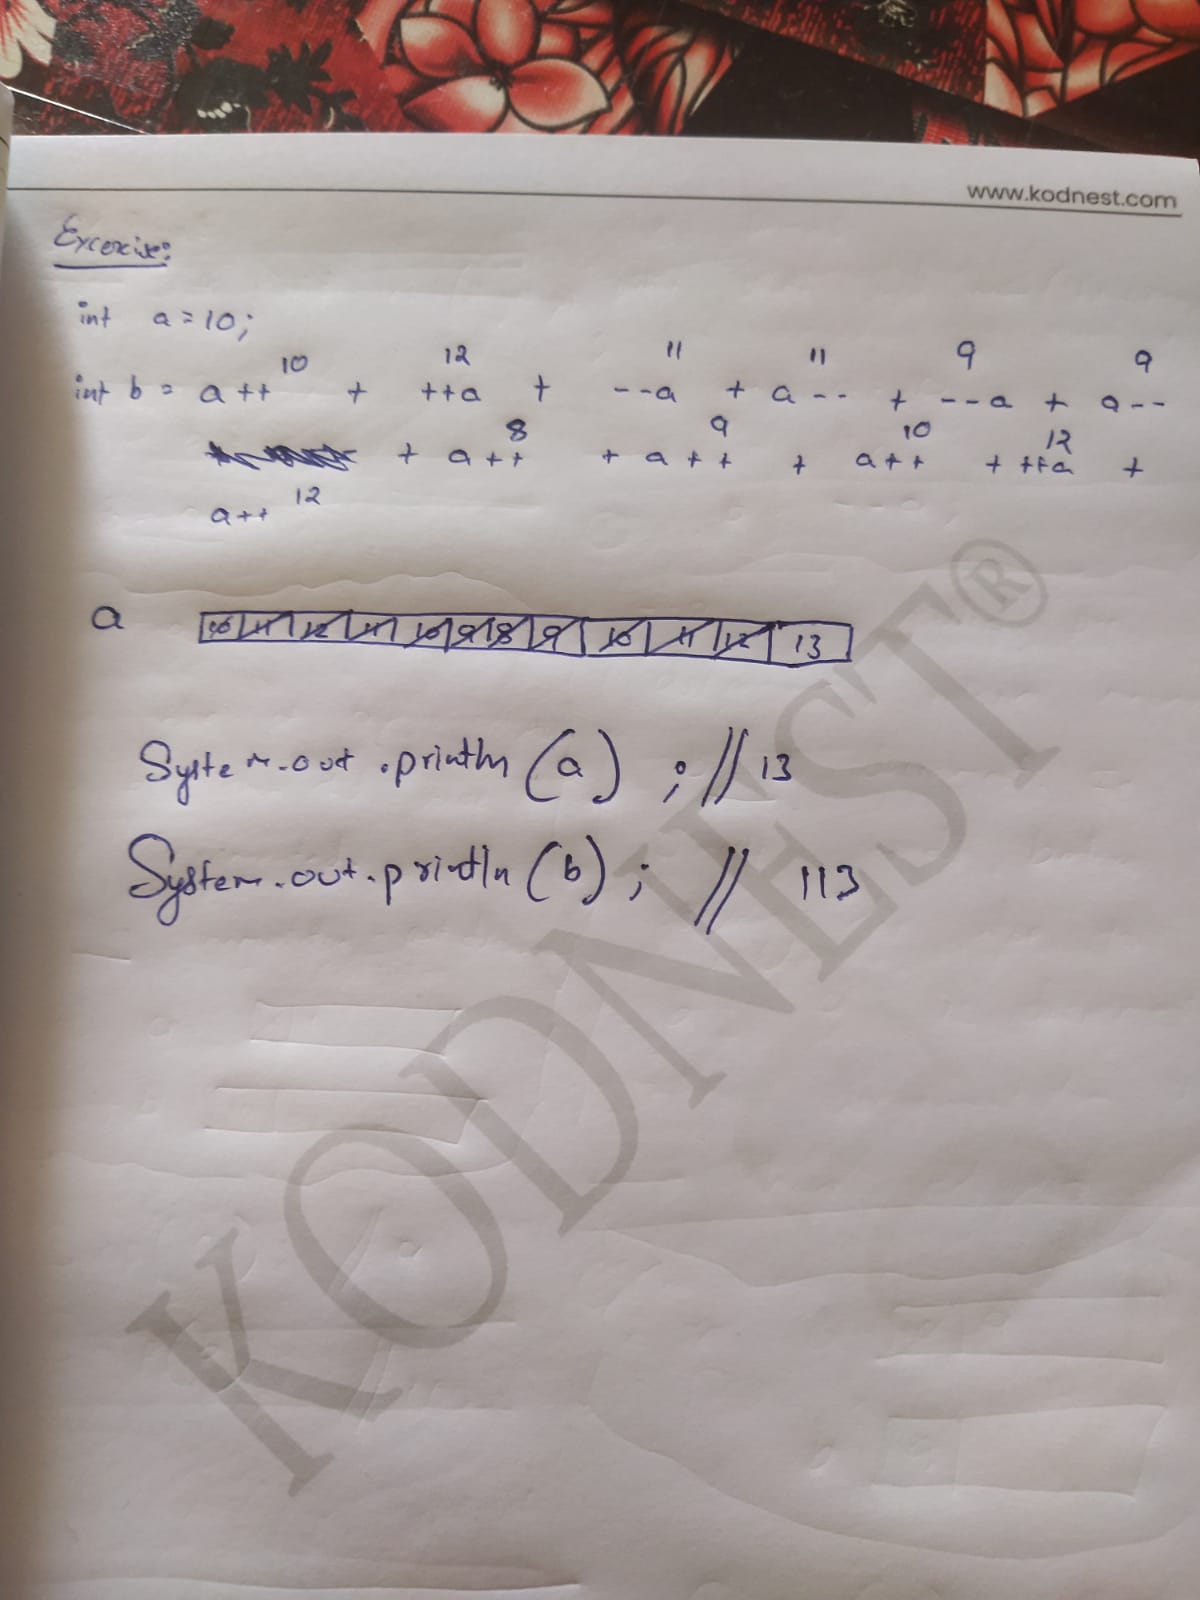 www.kodnest.com
Excercise:
int a = 10;
10 12 11 11 9 9
int b = a++ + ++a + --a + a-- + --a + a--
8 9 10 12
+ a++ + a++ + a++ + ++a +
a++ 12
a 10 11 12 11 10 9 8 9 10 11 12 13
System.out.println(a) ; // 13
System.out.println(b) ; // 113
KODNEST®